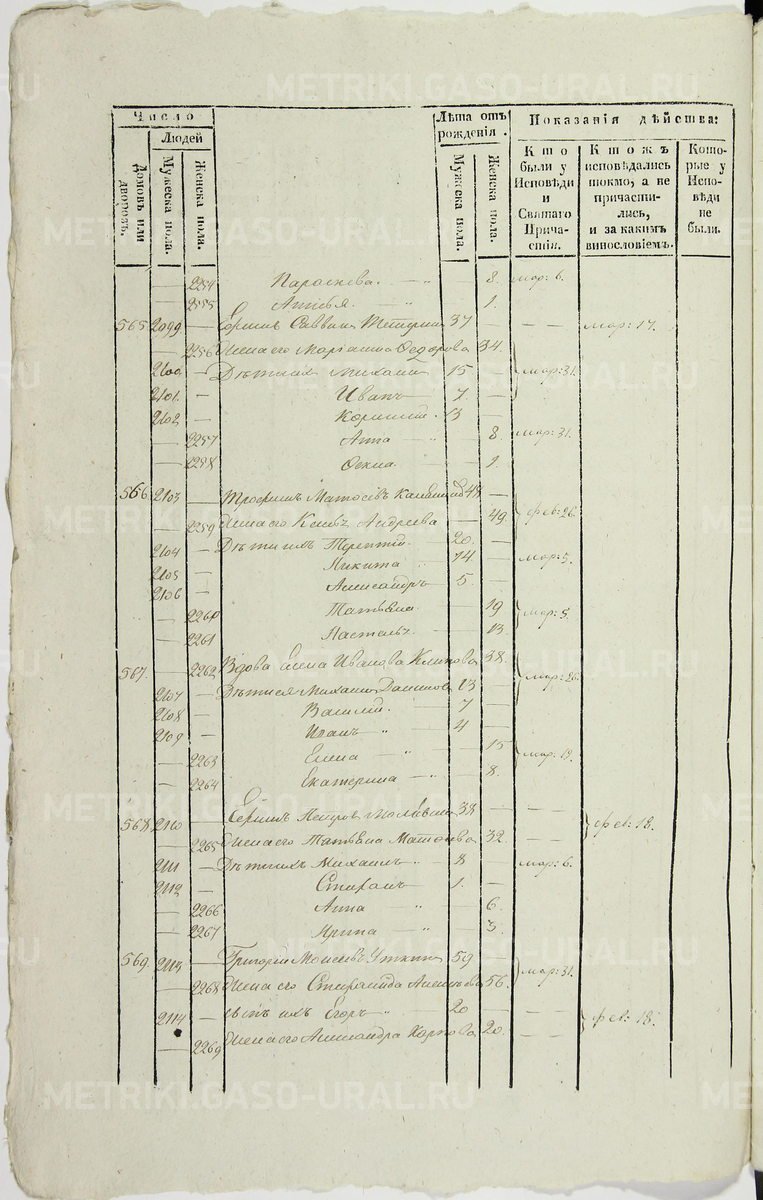 METRIKI.GASO-URAL.RU
Число
Людей
Домовъ или дворовъ.
Мужеска пола.
Женска пола.
Лѣта отъ рожденія.
Мужеска пола.
Женска пола.
Показанія дѣйства:
Кто были у Исповѣди и Святаго Причастія.
Ктожъ исповѣдались токмо, а не причастились, и за какимъ винословіемъ.
Которые у Исповѣди не были.
2254 8. мар: 6.
2255 1.
565 2099 Саввинъ 37 мар: 17.
2256 Жена его Маріанна Федорова 34.
2100 Дѣти ихъ Михаилъ 15 мар: 31.
2101 Иванъ 7
2102 13
2257 Анна 8. мар: 31.
2258 1.
566 2103 Трофимъ 48
2259 Жена его Андреева 49. фев: 26.
2104 Дѣти ихъ Терентій 20.
2105 Никита 14 мар: 5.
2106 Александръ 5
2260 Татьяна 19 мар: 5.
2261 13
567. 2262 Вдова Елена Иванова 38.
2107 Дѣти ея Михаилъ 13 мар: 26.
2108 Василій 7
2109 Иванъ 4
2263 Елена 15 мар: 19.
2264 Екатерина 8.
568 2110 Петровъ 38 фев: 18.
2265 Жена его Татьяна 32
2111 Дѣти ихъ Михаилъ 8 мар: 6.
2112 Стефанъ 1.
2266 Анна 6
2267 3.
569. 2113 Григорій Моисеевъ Уткинъ 59 мар: 31.
2268 Жена его Стефанида 56.
2114 сынъ ихъ Егоръ 20 фев: 18.
2269 Жена его Александра Карпова 20.